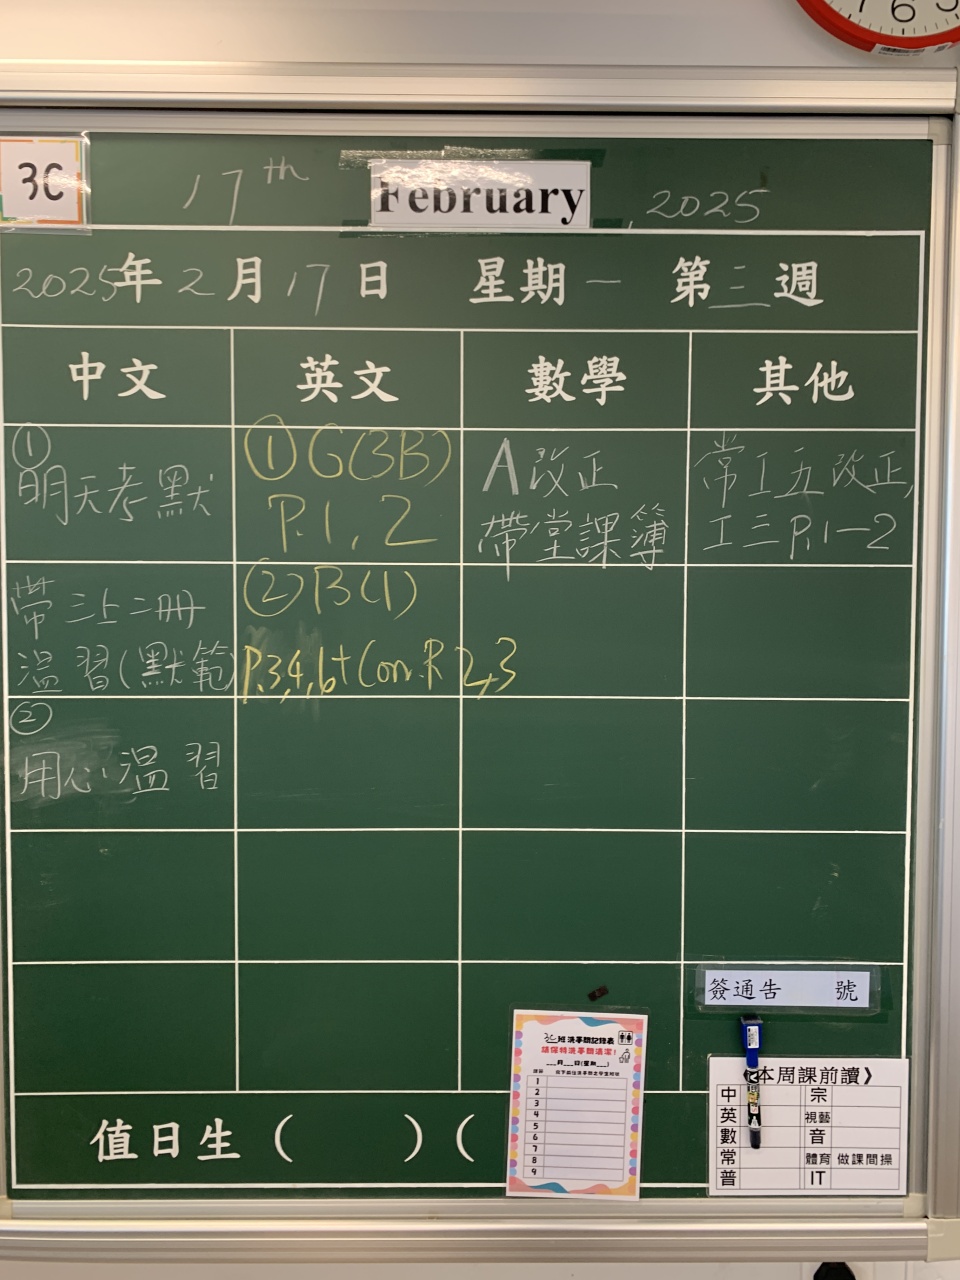 7 6 5
3C
17th February, 2025
2025年2月17日 星期一 第三週
中文 英文 數學 其他
①
明天考默
帶三上二冊
溫習(默範)
②
用心溫習
①G(3B)
P.1, 2
②B(1)
P.3,4,6+Corr. P. 2,3
A改正
帶堂課簿
常工五改正,
工三P.1-2
簽通告 號
3C班洗手間記錄表
請保持洗手間清潔!
___月___日(星期___)
1
2
3
4
5
6
7
8
9
《本周課前讀》
中 宗
英 視藝
數 音
常 體育 做課間操
普 IT
值日生( )(